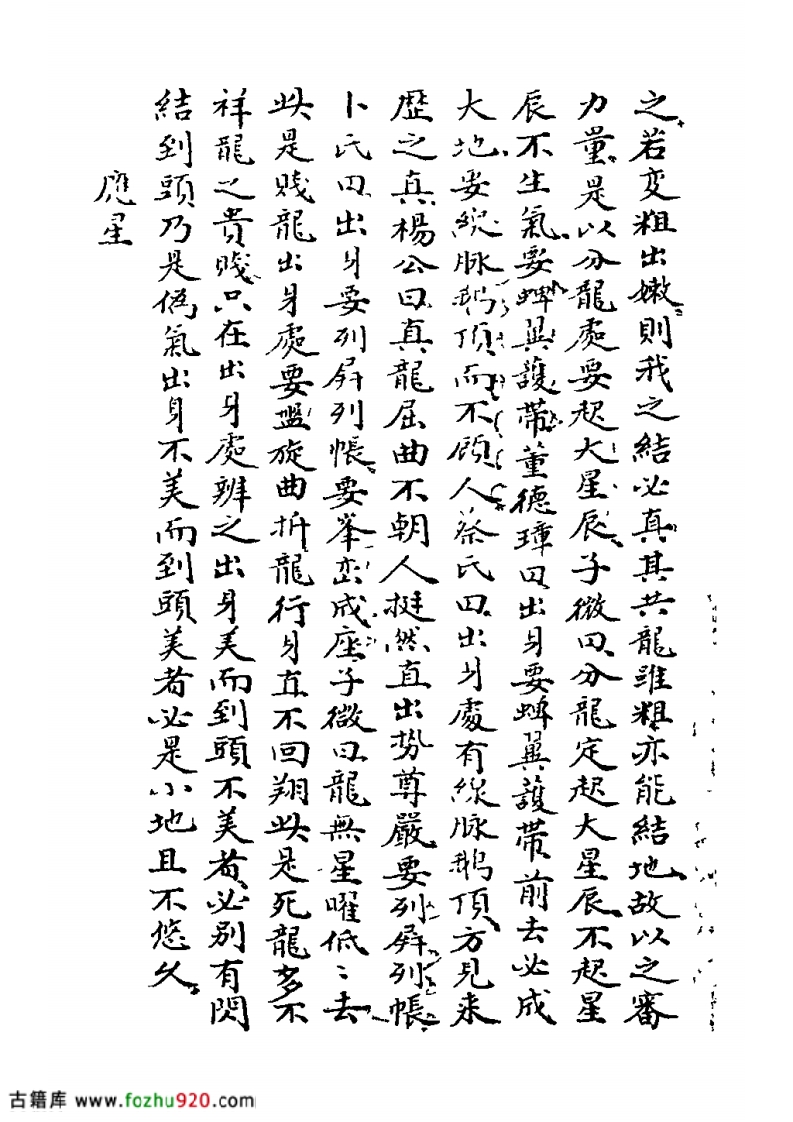 之若变粗出嫩則我之結必真其共龍雖粗亦能結地故以之審
力量是以分龍處要起大星辰子微曰分龍定起大星辰不起星
辰不生氣要蜱翼護带董德璋曰出身要蜱翼護带前去必成
大地要線脉鵝頂而不顧人蔡氏曰出身處有線脉鵝頂方見来
歴之真楊公曰真龍屈曲不朝人挺然直出势尊嚴要列屏列帳
卜氏曰出身要列屏列帳要峯峦成座子微曰龍無星曜低〻去
此是賤龍出身處要盤旋曲折龍行身直不回翔此是死龍多不
祥龍之貴賤只在出身處辨之出身美而到頭不美者必别有閃
結到頭乃是偽氣出身不美而到頭美者必是小地且不悠久
應星
古籍库 www.fozhu920.com